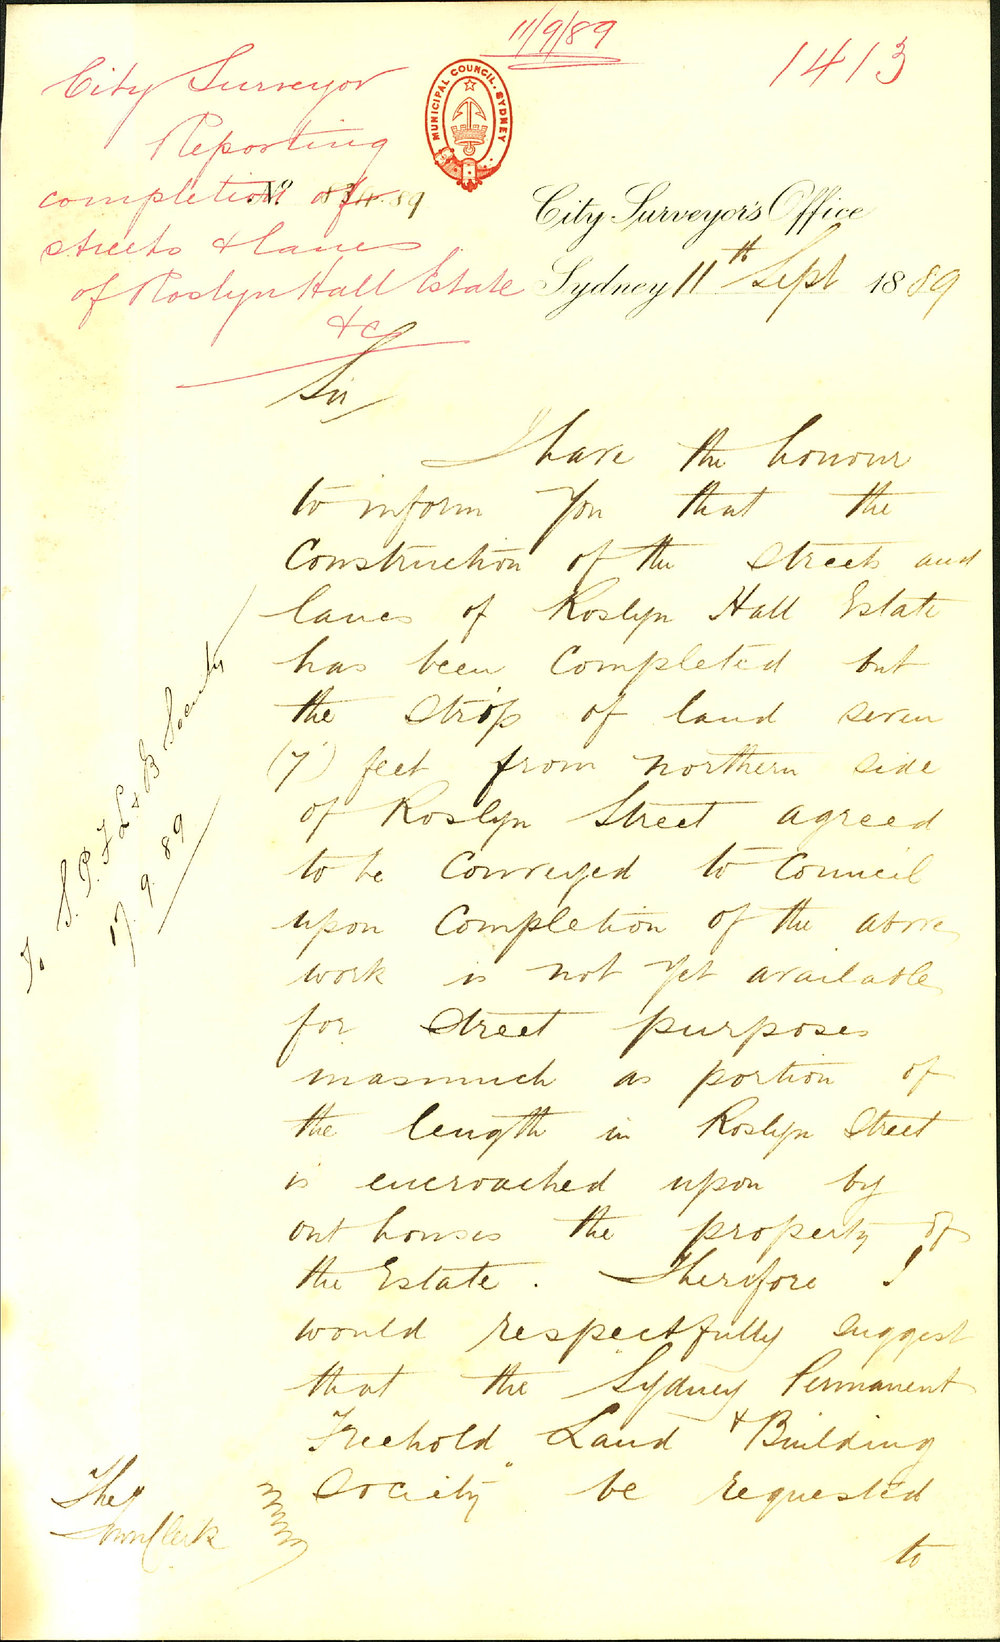 11/9/89
1413
City Surveyor
Reporting
completion of
streets & lanes
of Roslyn Hall Estate
&c
MUNICIPAL COUNCIL. SYDNEY
No 89
City Surveyor's Office
Sydney 11th Sept 1889
Sir,
I have the honour
to inform you that the
Construction of the Streets and
lanes of Roslyn Hall Estate
has been Completed but
the Strip of land seven
(7) feet from northern side
of Roslyn Street agreed
to be Conveyed to Council
upon Completion of the above
work is not yet available
for Street purposes
inasmuch as portion of
the length in Roslyn Street
is encroached upon by
out houses the property of
the Estate. Therefore I
would respectfully suggest
that the Sydney Permanent
Freehold Land & Building
Society be requested
to
To S. P. F L & B Society
17. 9. 89
The
Town Clerk